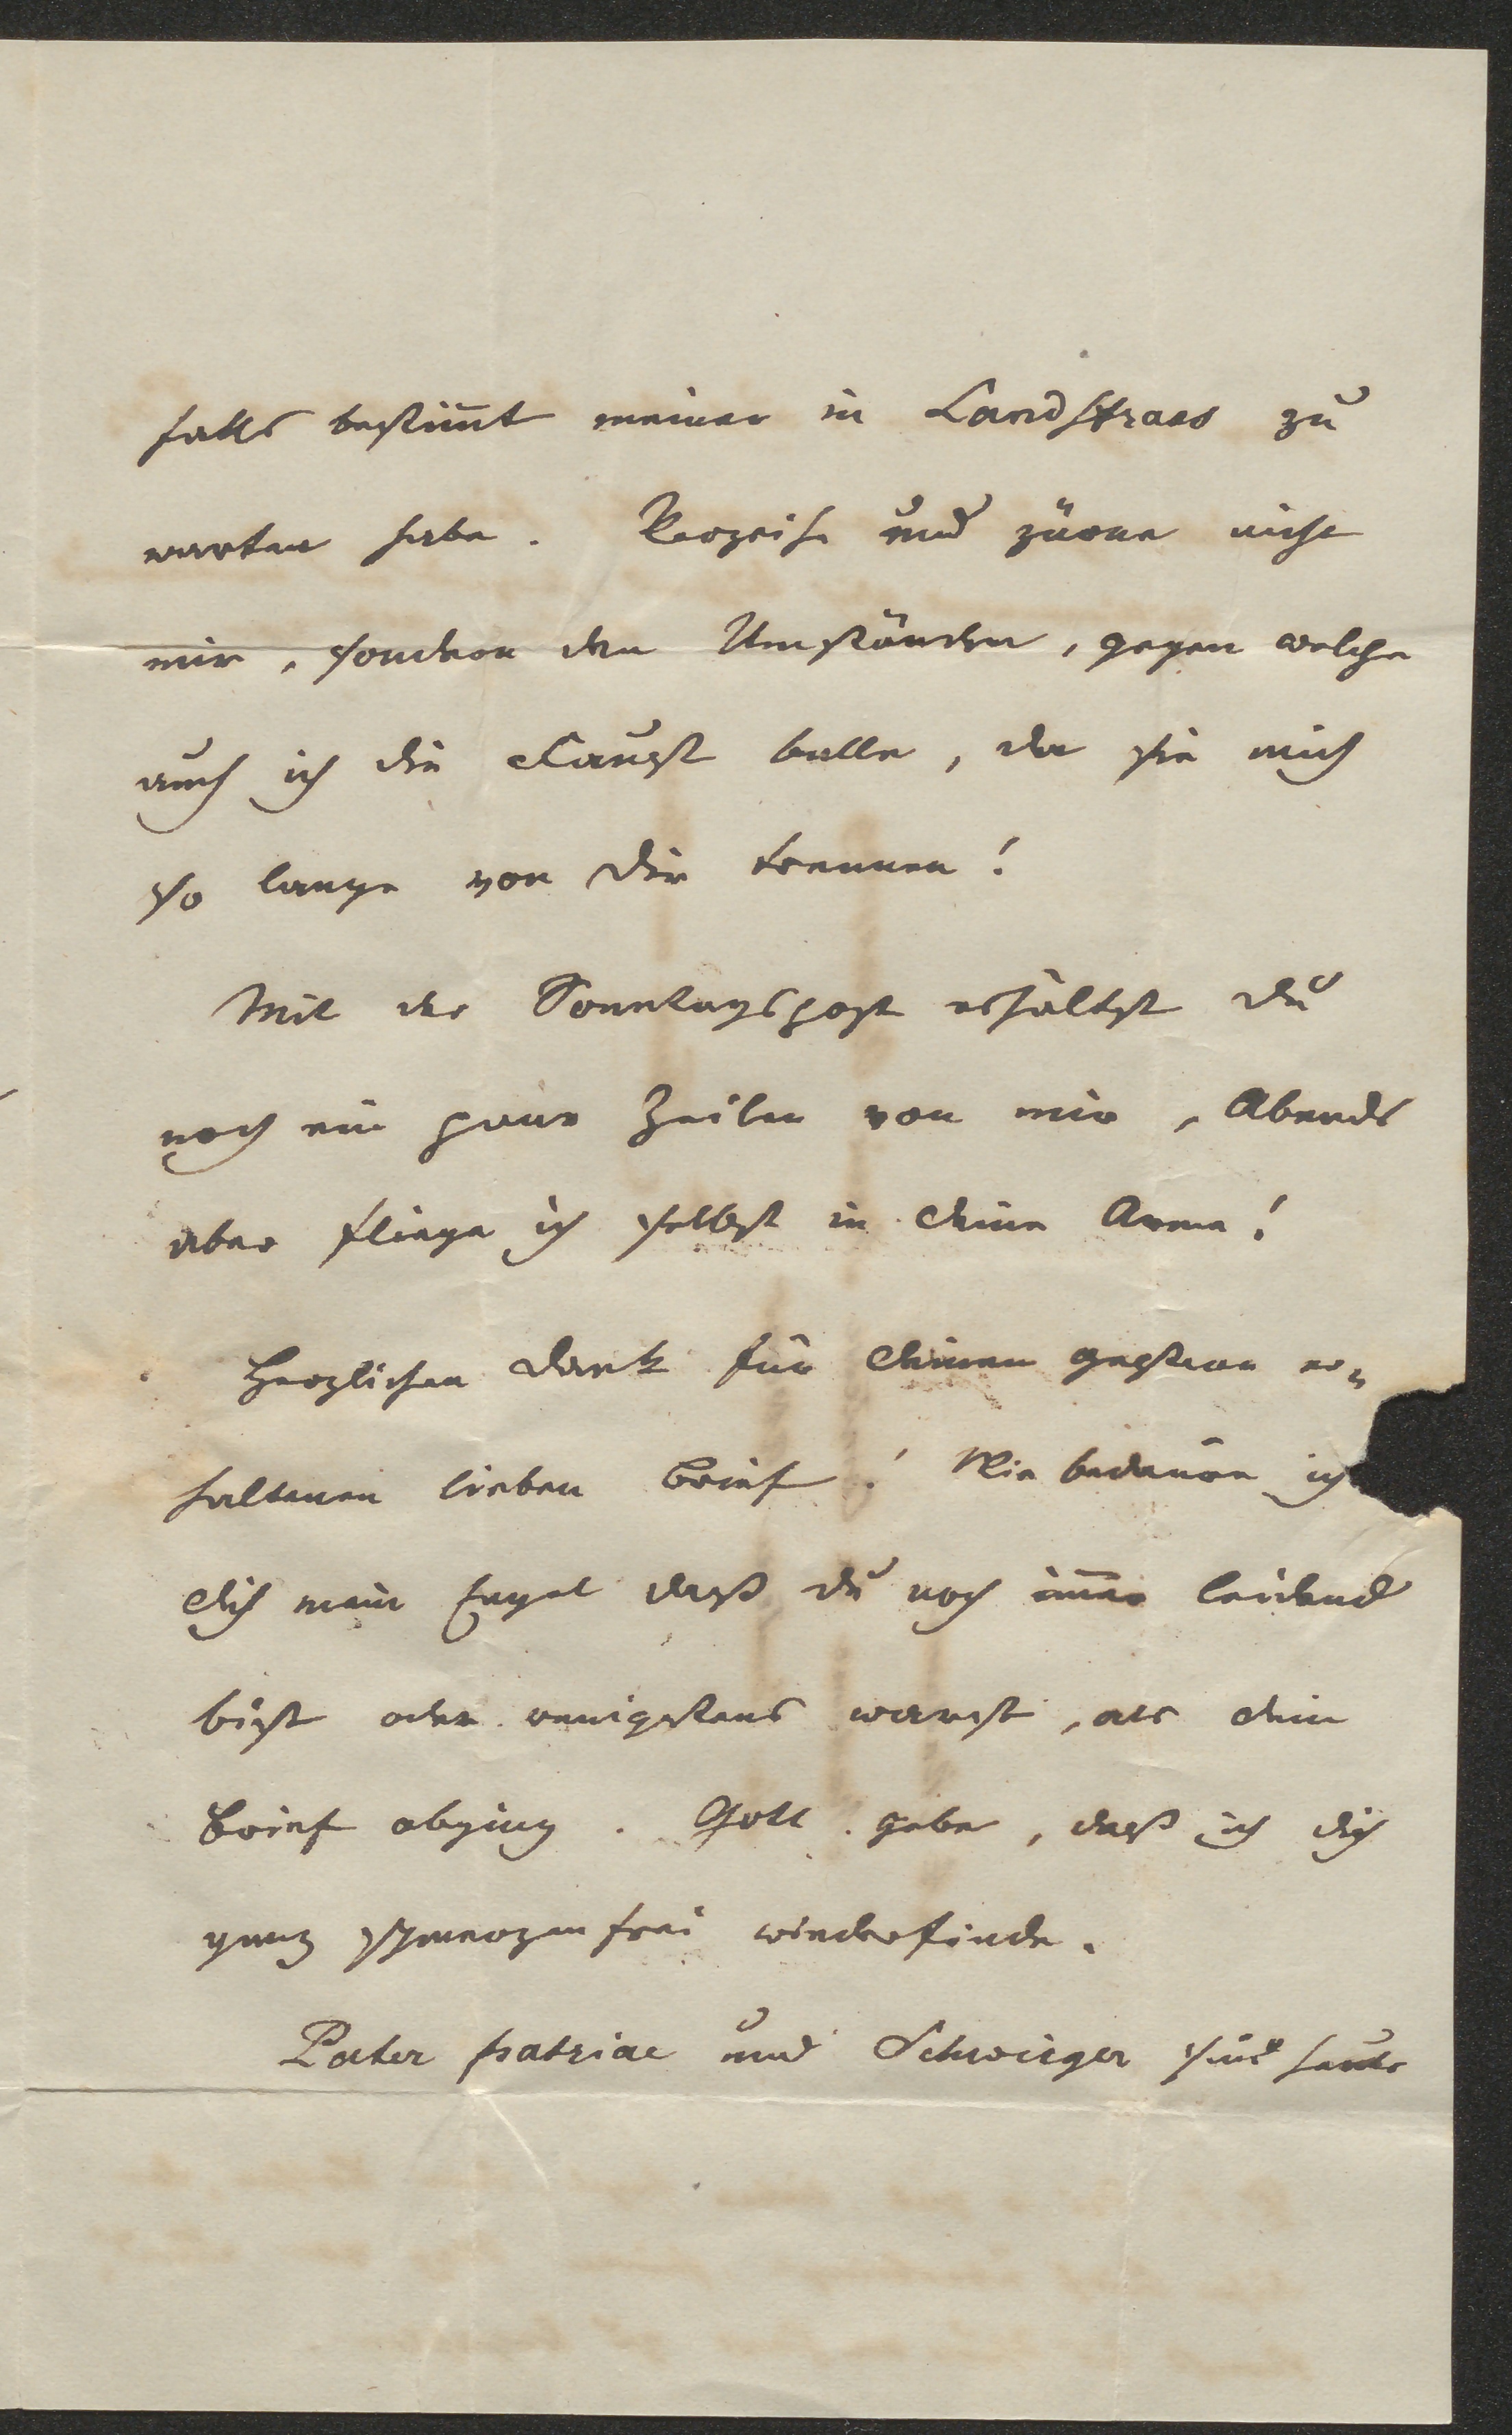 falls bestim̅t meiner in Landstrass zu
warten habe. Verzeihe und zürne nicht
mir, sondern den Umständen, gegen welche
auch ich die Faust balle, da sie mich
so lange von Dir trennen!
Mit der Sonntagspost erhältst Du
noch ein paar Zeilen von mir, Abends
aber fliege ich selbst in Deine Arme!
Herzlichen Dank für Deinen gestern er-
haltenen lieben Brief! Wie bedaure ich
Dich mein Engel daß Du noch im̅er leidend
bist oder wenigstens warst, als Dein
Brief abging. Gott gebe, daß ich Dich
ganz schmerzenfrei wiederfinde.
Pater patriae und Schwinger sind heute